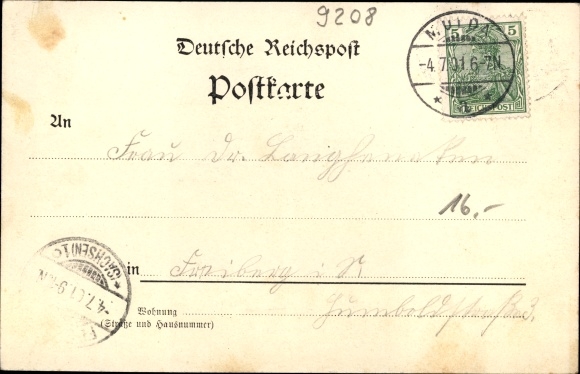 9208
Deutsche Reichspost
Postkarte
MULDA
-4.7.01.6-7N.
* a *
5 5
REICHSPOST
An
Frau Dr.
16.-
(SACHSEN) 1
-4.7.01.9-
in Freiberg i. S.
Wohnung
(Straße und Hausnummer)
Humboldtstraße 3.